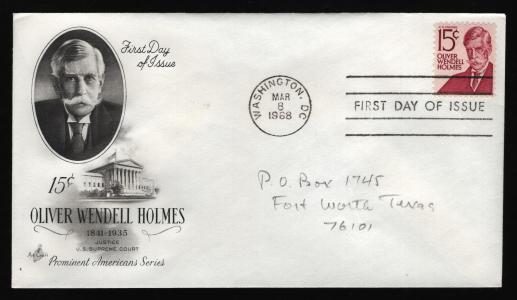 First Day
of Issue
15¢
OLIVER WENDELL HOLMES
1841-1935
JUSTICE
U.S. SUPREME COURT
ArtCraft
Prominent Americans Series
WASHINGTON, DC
MAR
8
1968
15¢
OLIVER
WENDELL
HOLMES
FIRST DAY OF ISSUE
P.O. Box 1745
Fort Worth Texas
76101